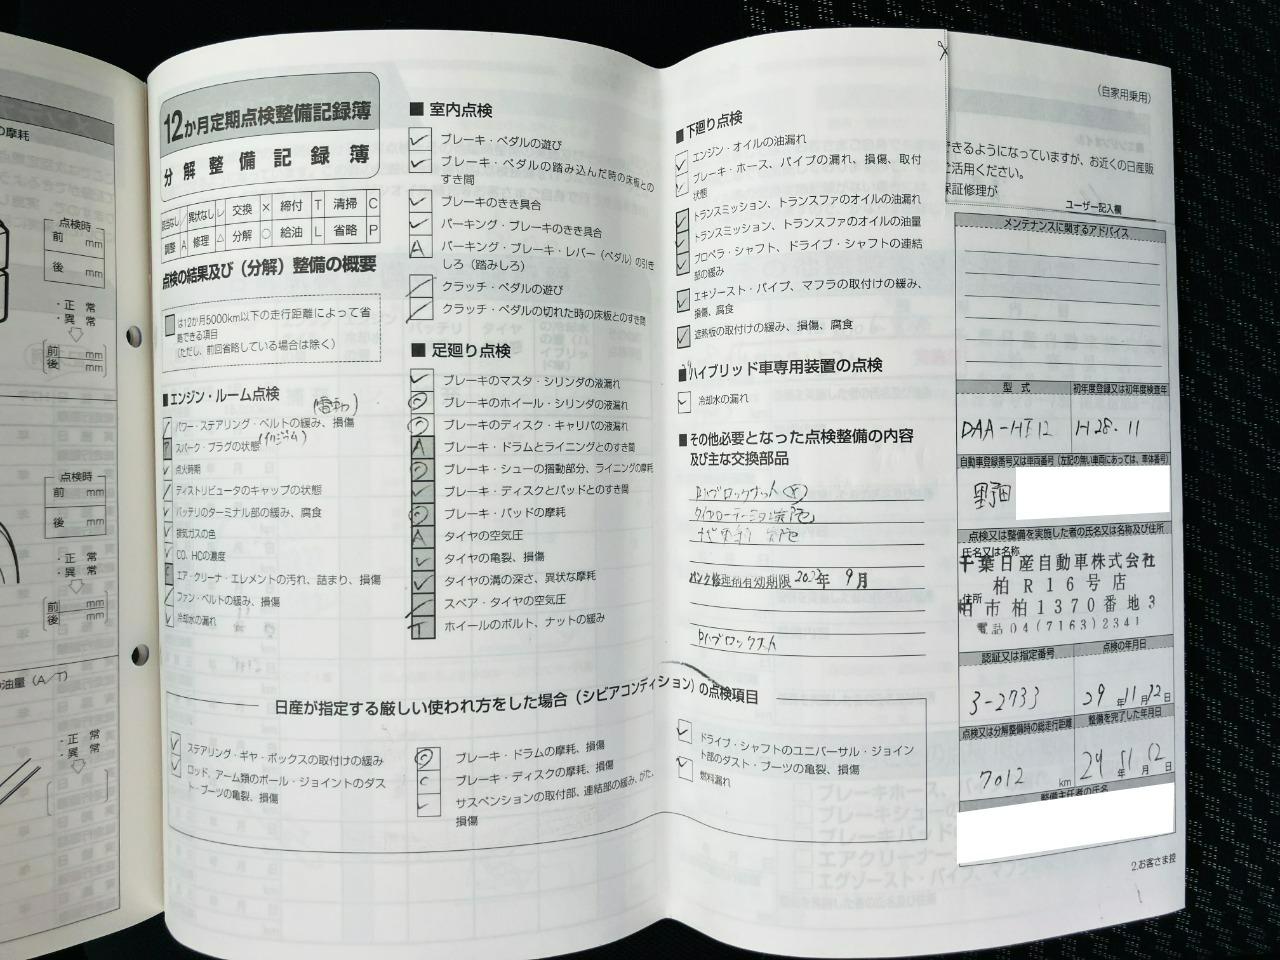 の摩耗
点検時
前 mm
後 mm
・正 常
・異 常
前 mm
後 mm
点検時
前 mm
後 mm
・正 常
・異 常
前 mm
後 mm
の油量（A／T）
・正 常
・異 常
12か月定期点検整備記録簿
分解整備記録簿
該当なし ／ 異状なし レ 交換 × 締付 T 清掃 C
調整 A 修理 △ 分解 ○ 給油 L 省略 P
点検の結果及び（分解）整備の概要
は12か月5000km以下の走行距離によって省
略できる項目
（ただし、前回省略している場合は除く）
■エンジン・ルーム点検
(電動)
パワー・ステアリング・ベルトの緩み、損傷
スパーク・プラグの状態
点火時期
ディストリビュータのキャップの状態
バッテリのターミナル部の緩み、腐食
排気ガスの色
CO、HCの濃度
エア・クリーナ・エレメントの汚れ、詰まり、損傷
ファン・ベルトの緩み、損傷
冷却水の漏れ
■ 室内点検
ブレーキ・ペダルの遊び
ブレーキ・ペダルの踏み込んだ時の床板との
すき間
ブレーキのきき具合
パーキング・ブレーキのきき具合
A パーキング・ブレーキ・レバー（ペダル）の引き
しろ（踏みしろ）
クラッチ・ペダルの遊び
クラッチ・ペダルの切れた時の床板とのすき間
■ 足廻り点検
ブレーキのマスタ・シリンダの液漏れ
ブレーキのホイール・シリンダの液漏れ
ブレーキのディスク・キャリパの液漏れ
A ブレーキ・ドラムとライニングとのすき間
ブレーキ・シューの摺動部分、ライニングの摩耗
ブレーキ・ディスクとパッドとのすき間
ブレーキ・パッドの摩耗
A タイヤの空気圧
タイヤの亀裂、損傷
タイヤの溝の深さ、異状な摩耗
スペア・タイヤの空気圧
T ホイールのボルト、ナットの緩み
■下廻り点検
エンジン・オイルの油漏れ
ブレーキ・ホース、パイプの漏れ、損傷、取付
状態
トランスミッション、トランスファのオイルの油漏れ
トランスミッション、トランスファのオイルの油量
プロペラ・シャフト、ドライブ・シャフトの連結
部の緩み
エキゾースト・パイプ、マフラの取付けの緩み、
損傷、腐食
遮熱板の取付けの緩み、損傷、腐食
■ハイブリッド車専用装置の点検
冷却水の漏れ
■その他必要となった点検整備の内容
及び主な交換部品
タイヤローテーション実施
パンク修理剤有効期限 2022年 9月
日産が指定する厳しい使われ方をした場合（シビアコンディション）の点検項目
ステアリング・ギヤ・ボックスの取付けの緩み
ロッド、アーム類のボール・ジョイントのダス
ト・ブーツの亀裂、損傷
ブレーキ・ドラムの摩耗、損傷
ブレーキ・ディスクの摩耗、損傷
サスペンションの取付部、連結部の緩み、がた、
損傷
ドライブ・シャフトのユニバーサル・ジョイン
ト部のダスト・ブーツの亀裂、損傷
燃料漏れ
（自家用乗用）
できるようになっていますが、お近くの日産販
ご活用ください。
保証修理が
ユーザー記入欄
メンテナンスに関するアドバイス
型 式 初年度登録又は初年度検査年
DAA-HT12 H28.11
自動車登録番号又は車両番号（左記の無い車両にあっては、車体番号）
野田
点検又は整備を実施した者の氏名又は名称及び住所
氏名又は名称
千葉日産自動車株式会社
柏R16号店
住所
柏市柏1370番地3
電話04(7163)2341
認証又は指定番号 点検の年月日
3-2733 29年11月12日
点検又は分解整備時の総走行距離 整備を完了した年月日
7012 km 29年11月12日
整備主任者の氏名
2.お客さま控